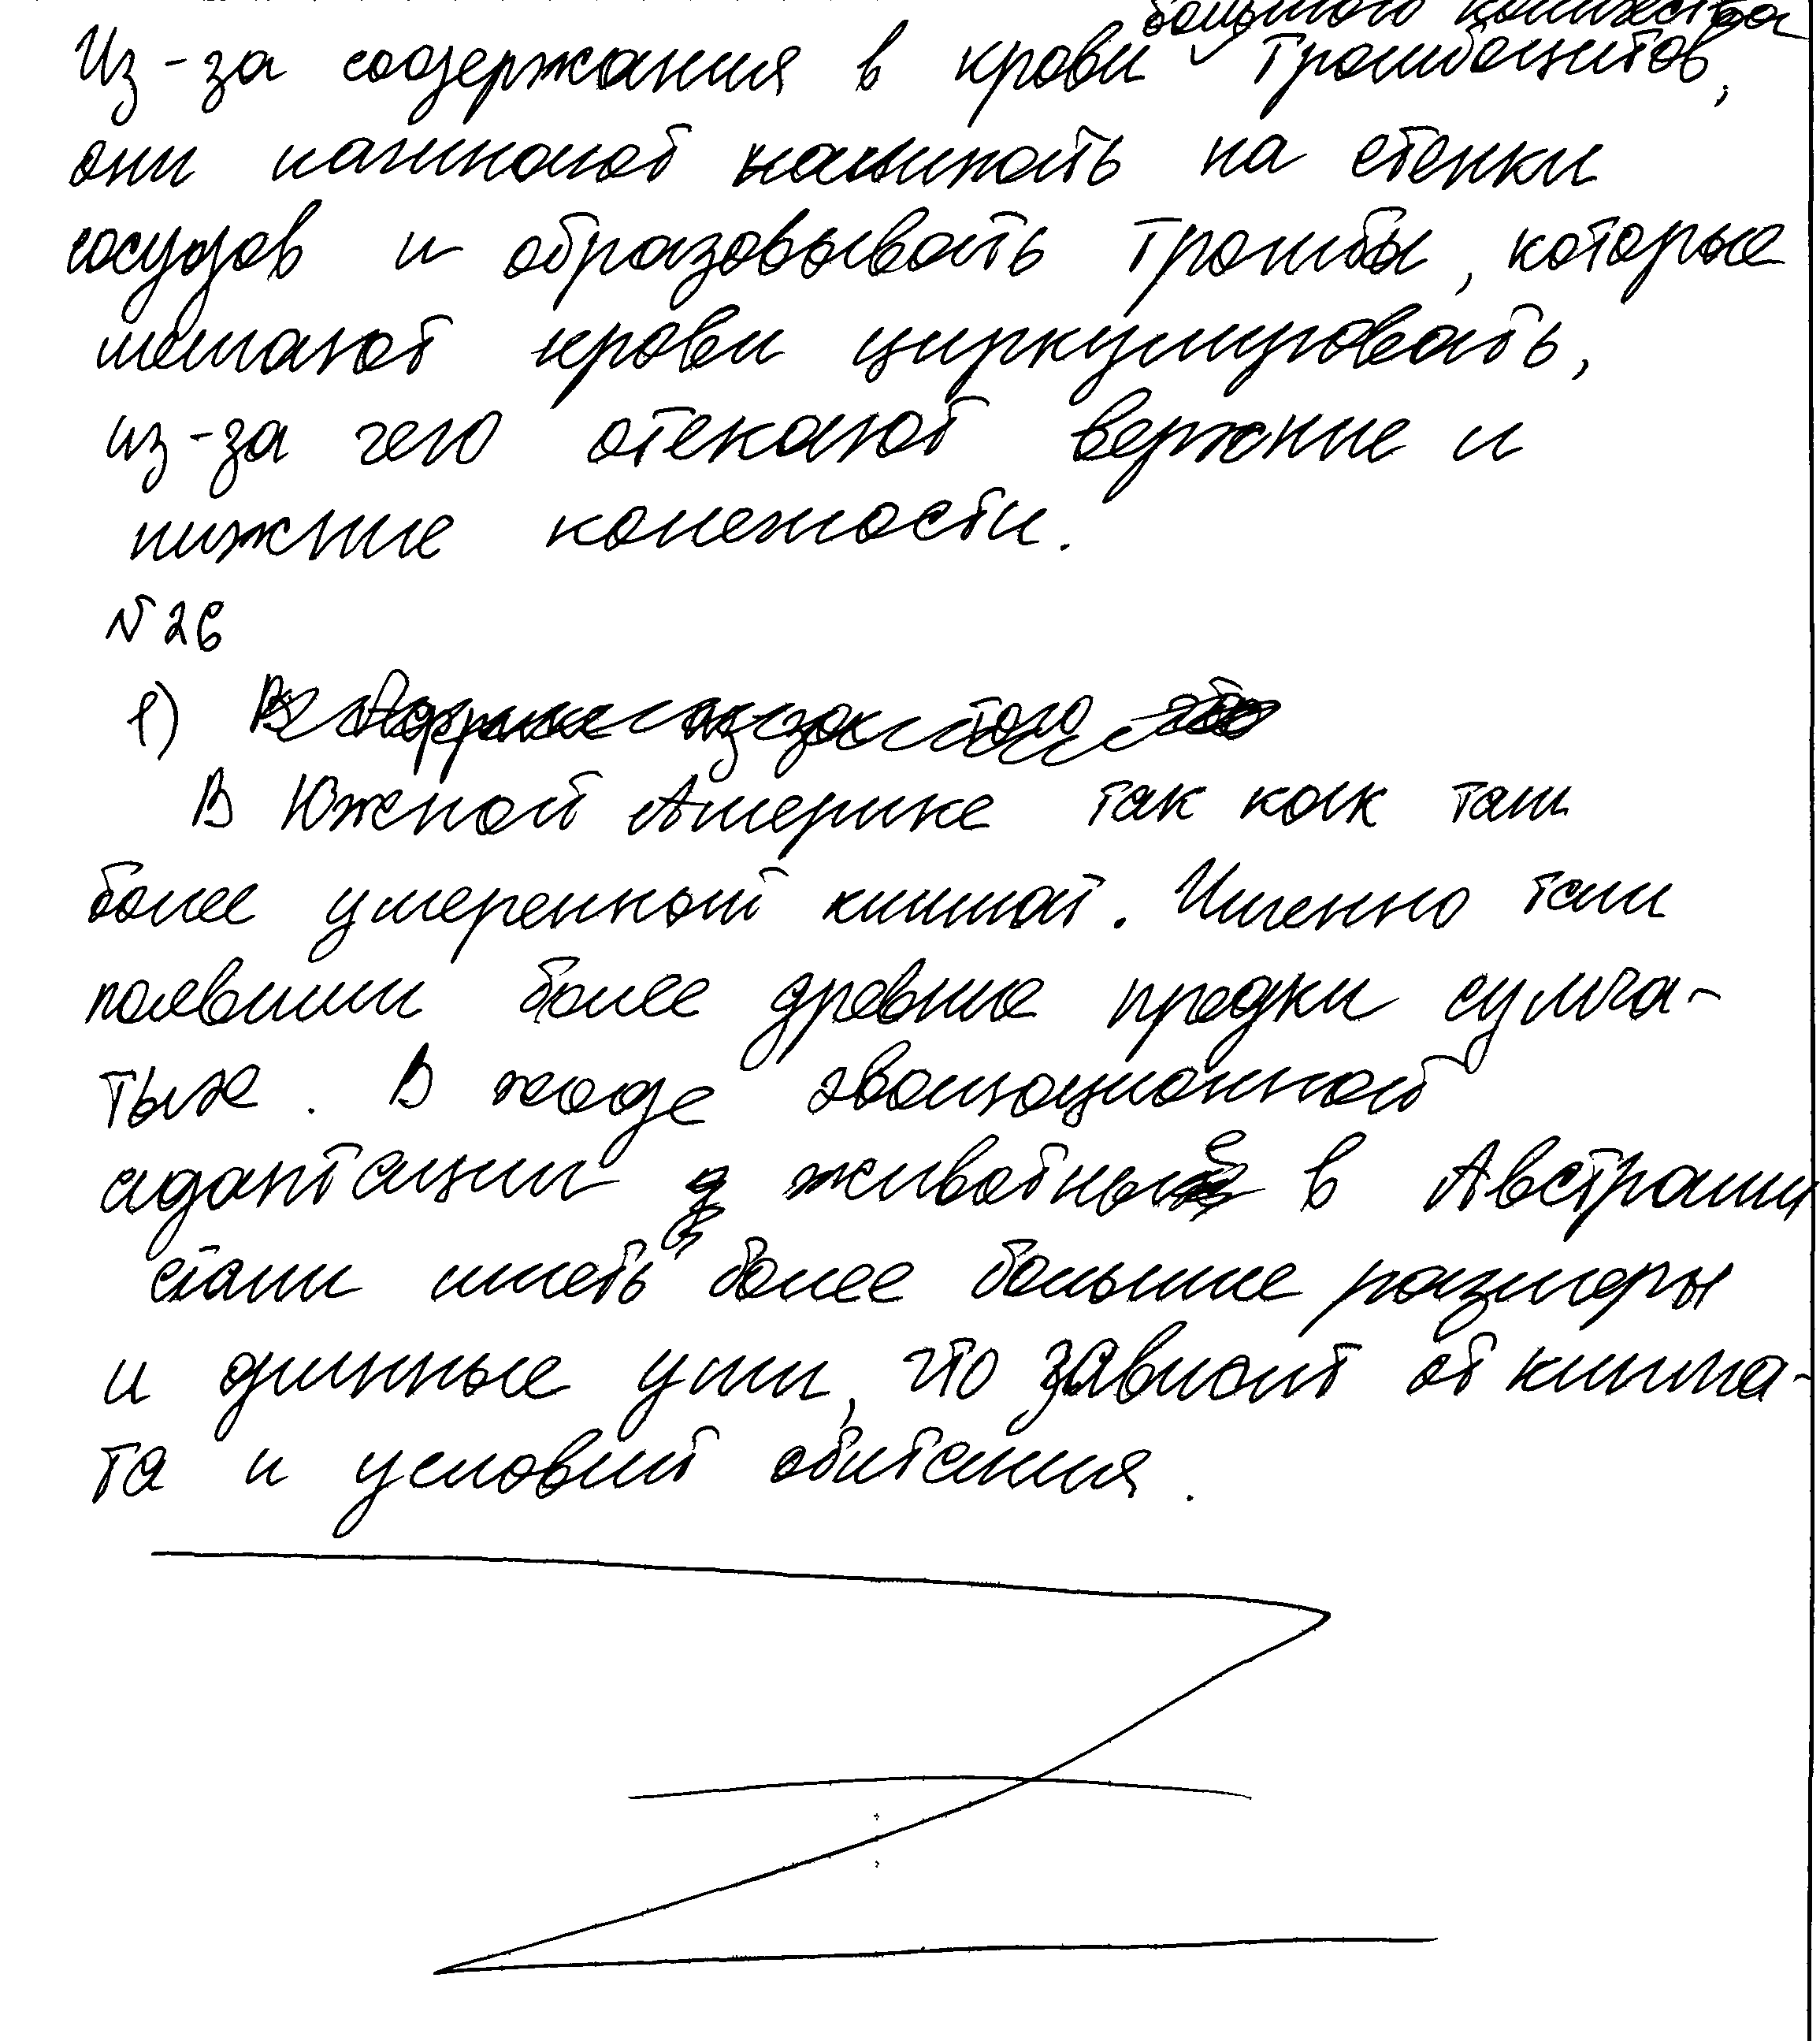 большого количества
Из-за содержания в крови тромбоцитов,
они начинают налипать на стенки
сосудов и образовывать тромбы, которые
мешают крови циркулировать,
из-за чего отекают верхние и
нижние конечности.
№26
1)
В Южной Америке так как там
более умеренный климат. Именно там
появили более древние предки сумча-
тых. В ходе эволюционной
адаптации животные в Австралии
стали иметь более большие размеры
и длинные уши, что зависит от клима-
та и условий обитания.